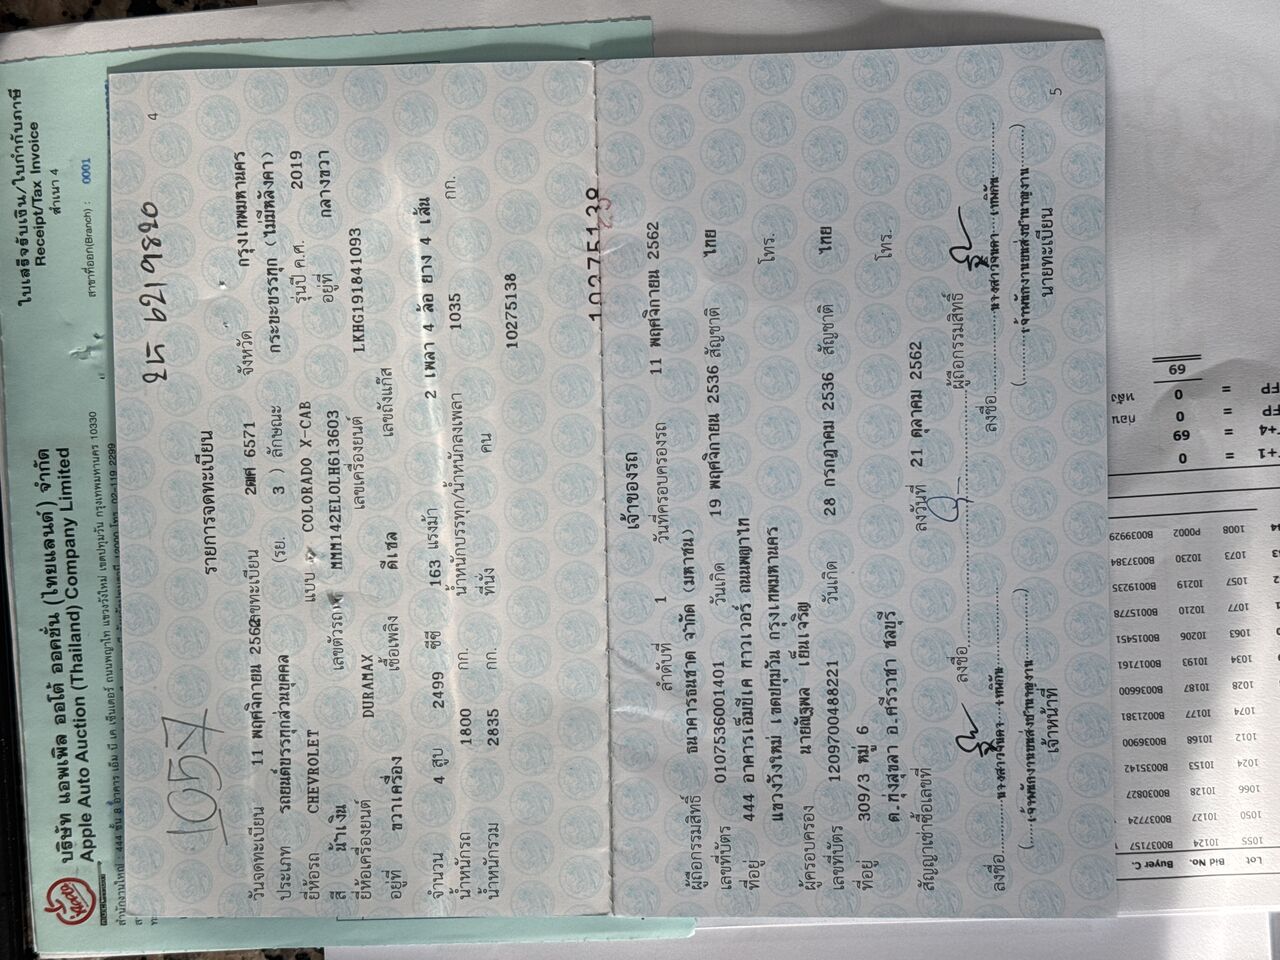 บริษัท แอพเพิล ออโต้ ออคชั่น (ไทยแลนด์) จำกัด
Apple Auto Auction (Thailand) Company Limited
สำนักงานใหญ่ : 444 ชั้น 8 อาคาร เอ็ม บี เค เซ็นเตอร์ ถนนพญาไท แขวงวังใหม่ เขตปทุมวัน กรุงเทพมหานคร 10330
ใบเสร็จรับเงิน/ใบกำกับภาษี
Receipt/Tax Invoice
สำเนา 4
สาขาที่ออก(Branch) : 0001
4
1057
ขก 6219820
รายการจดทะเบียน
วันจดทะเบียน 11 พฤศจิกายน 2562 เลขทะเบียน 2ฒศ 6571 จังหวัด กรุงเทพมหานคร
ประเภท รถยนต์บรรทุกส่วนบุคคล (รย. 3 ) ลักษณะ กระบะบรรทุก (ไม่มีหลังคา)
ยี่ห้อรถ CHEVROLET แบบ COLORADO X-CAB รุ่นปี ค.ศ. 2019
สี น้ำเงิน เลขตัวรถ MMM142ELOLH613603 อยู่ที่ กลางขวา
ยี่ห้อเครื่องยนต์ DURAMAX เลขเครื่องยนต์ LKHG191841093
อยู่ที่ ขวาเครื่อง เชื้อเพลิง ดีเซล เลขถังแก๊ส
จำนวน 4 สูบ 2499 ซีซี 163 แรงม้า 2 เพลา 4 ล้อ ยาง 4 เส้น
น้ำหนักรถ 1800 กก. น้ำหนักบรรทุก/น้ำหนักลงเพลา 1035 กก.
น้ำหนักรวม 2835 กก. ที่นั่ง คน
10275138
10275138
เจ้าของรถ
ลำดับที่ 1 วันที่ครอบครองรถ 11 พฤศจิกายน 2562
ผู้ถือกรรมสิทธิ์ ธนาคารธนชาต จำกัด (มหาชน)
เลขที่บัตร 0107536001401 วันเกิด 19 พฤศจิกายน 2536 สัญชาติ ไทย
ที่อยู่ 444 อาคารเอ็มบีเค ทาวเวอร์ ถนนพญาไท โทร.
แขวงวังใหม่ เขตปทุมวัน กรุงเทพมหานคร
ผู้ครอบครอง นายณัฐพล เย็นเจริญ
เลขที่บัตร 1209700488221 วันเกิด 28 กรกฎาคม 2536 สัญชาติ ไทย
ที่อยู่ 309/3 หมู่ 6 โทร.
ต.ทุ่งสุขลา อ.ศรีราชา ชลบุรี
สัญญาเช่าซื้อเลขที่ ลงวันที่ 21 ตุลาคม 2562
ลงชื่อ ผู้ถือกรรมสิทธิ์
ลงชื่อ
ลงชื่อ
(เจ้าพนักงานขนส่งชำนาญงาน)
(เจ้าพนักงานขนส่งชำนาญงาน)
เจ้าหน้าที่
นายทะเบียน
5
Lot Bid No. Buyer C.
1055 I0124 B0037157
1050 I0127 B0037724
1066 I0128 B0030827
1024 I0153 B0035142
1012 I0168 B0036900
1074 I0177 B0021381
1028 I0187 B0036600
1034 I0193 B0017161
1063 I0206 B0015451
1077 I0210 B0015778
1057 I0219 B0019235
1073 I0230 B0037384
1008 P0002 B0039929
+1 = 0
+4 = 69
FP = 0 ก่อน
FP = 0 หลัง
69